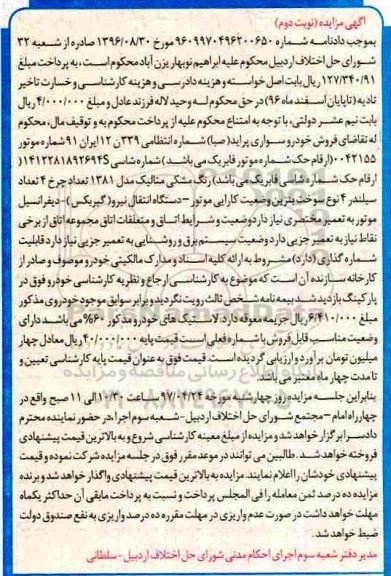 آگهی مزایده (نوبت دوم)
بموجب دادنامه شماره ۹۶۰۹۹۷۰۴۹۶۲۰۰۶۵۰ مورخ ۱۳۹۶/۰۸/۳۰ صادره از شعبه ۳۲
شورای حل اختلاف اردبیل محکوم علیه ابراهیم نوبهار یزن آباد محکوم است، به پرداخت مبلغ
۱۲۷/۳۴۰/۹۱ ریال بابت اصل خواسته و هزینه دادرسی و هزینه کارشناسی و خسارت تاخیر
تادیه (تاپایان اسفند ماه ۹۶) در حق محکوم لــه وحید لاله فرزند عادل و مبلغ ۴/۰۰۰/۰۰۰ ریال
بابت نیم عشــر دولتی، با توجه به امتناع محکوم علیه از پرداخت محکوم به و توقیف مال، محکوم
له تقاضای فروش خودرو سواری پراید (صبا) شماره انتظامی ۳۳۹ن ۱۲ ایران ۹۱ شماره موتور
۰۰۴۲۱۵۵ (ارقام حک شماره موتور فابریک می باشد) شماره شاسی S۱۴۱۲۲۸۱۸۹۲۶۹۴ (
ارقام حک شماره شاسی فابریک می باشد) رنگ مشکی متالیک مدل ۱۳۸۱ تعداد چرخ ۴ تعداد
سیلندر ۴ نوع سوخت بنزین وضعیت کارایی موتور – دستگاه انتقال نیرو (گیربکس) – دیفرانسیل
موتور به تعمیر مختصری نیاز دارد وضعیت و شرایط اتاق و متعلقات اتاق مجموعه اتاق از برخی
نقاط نیاز به تعمیر جزیی دارد وضعیت سیستم برق و روشنایی به تعمیر جزیی نیاز دارد قابلیت
شماره گذاری (دارد) مشروط به ارائه کلیه اسناد و مدارک مالکیتی خودرو موصوف و صادر از
کارخانه سازنده آن است که موضوع به کارشناسی ارجاع و نظریه کارشناسی خودرو فوق در
پارکینگ بازدید شد بیمه نامه شخص ثالث رویت نگردید و برابر سوابق موجود خودروی مذکور
مبلغ ۶/۴۱۰/۰۰۰ ریال جریمه معوقه دارد. لاستیک های خودرو مذکور ۶۰% می باشد دارای
وضعیت مناسب قابل فروش با شماره فعلی است قیمت پایه ۴۰/۰۰۰/۰۰۰ ریال معادل چهار
میلیون تومان برآورد و ارزیابی گردیده است. قیمت فوق به عنوان قیمت پایه کارشناسی تعیین و
تا مدت چهار ماه معتبر می باشد.
بنابراین جلسه مزایده روز چهارشنبه مورخه ۹۷/۰۴/۲۴ ساعت ۱۰/۳۰ الی ۱۱ صبح واقع در
چهارراه امام – مجتمع شورای حل اختلاف اردبیل – شعبه سوم اجرا، در حضور نماینده محترم
دادسرا برگزار خواهد شد و مزایده از مبلغ معینه کارشناسی شروع و به بالاترین قیمت پیشنهادی
فروخته خواهد شد. طالبین می توانند در موعد مقرر فوق در جلسه مزایده شرکت نموده و قیمت
پیشنهادی خودشان را اعلام نمایند. مزایده به بالاترین قیمت پیشنهادی واگذار خواهد شد و برنده
مزایده ده درصد ثمن معامله را فی المجلس پرداخت و نسبت به پرداخت مابقی آن حداکثر یکماه
مهلت خواهد داشت در صورت عدم واریزی در مهلت مقرره ده درصد واریزی به نفع صندوق دولت
ضبط خواهد شد.
مدیر دفتر شعبه سوم اجرای احکام مدنی شورای حل اختلاف اردبیل – سلطانی